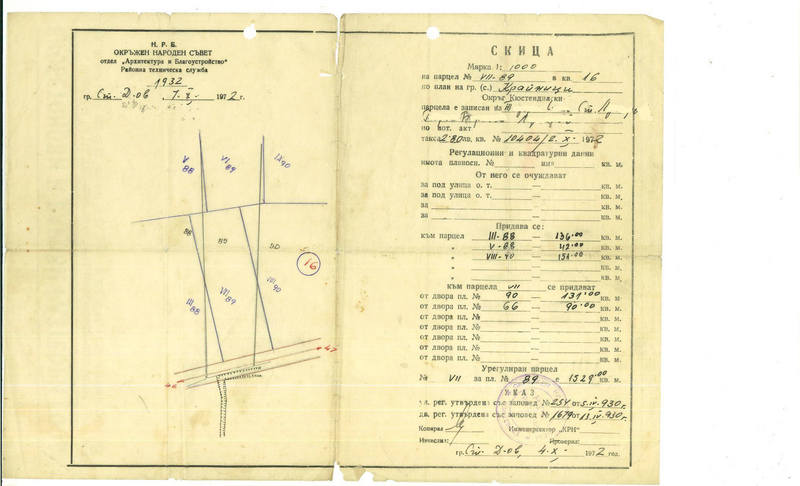 Н. Р. Б.
ОКРЪЖЕН НАРОДЕН СЪВЕТ
отдел „Архитектура и Благоустройство“
Районна техническа служба
1932
гр. Ст. Д-ов, 7. X. 1972 г.
V 88
VI 89
IX 90
88
89
90
III 88
VII 89
VIII 90
16
46
47
СКИЦА
Марка 1: 1000
на парцел № VII-89 в кв. 16
по план на гр. (с.) Крайници
Окръг Кюстендилски
парцела е записан на
по нот. акт
такса 2·80 лв. кв. № 10404/2. X. 1972
Регулационни и квадратурни данни
имота планосн. № има кв. м.
От него се очуждават
за под улица о. т. кв. м.
за под улица о. т. кв. м.
за кв. м.
за кв. м.
Придава се:
към парцел III-88 — 136·00 кв. м.
„ V-88 — 42·00 кв. м.
„ VIII-90 — 151·00 кв. м.
„ кв. м.
„ кв. м.
към парцела VII се придават
от двора пл. № 90 — 131·00 кв. м.
от двора пл. № 66 — 90·00 кв. м.
от двора пл. № кв. м.
от двора пл. № кв. м.
от двора пл. № кв. м.
от двора пл. № кв. м.
от двора пл. № кв. м.
Урегулиран парцел
№ VII за пл. № 89 е 1529·00 кв. м.
УКАЗ
ул. рег. утвърдена със заповед № 254 от 5. IV. 930 г.
дв. рег. утвърдена със заповед № 1679 от 13. IV. 930 г.
Копирал Инж.директор „КРН“
Изчислил: Проверил:
гр. Ст. Д-ов, 4. X. 1972 год.